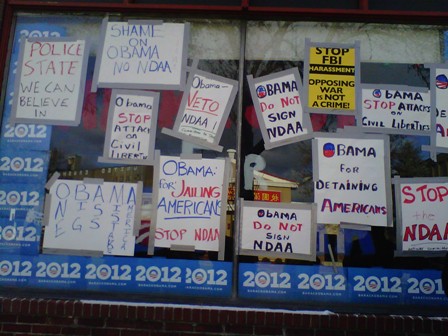 POLICE
STATE
WE CAN
BELIEVE
IN
SHAME
ON
OBAMA
NO NDAA
Obama
STOP
ATTACK
on
Civil
LIBERTIES
Obama-
VETO
NDAA!
OBAMA
Do NOT
SIGN
NDAA
STOP
FBI
HARASSMENT
OPPOSING
WAR IS
NOT
A CRIME!
OBAMA
STOP ATTACKS
on
CIVIL LIBERTIES
OBAMA
OBAMA:
FOR:
JAILING
AMERICANS
STOP NDAA
OBAMA
Do NOT
SIGN
NDAA
OBAMA
FOR
DETAINING
AMERICANS
STOP
the
NDAA
2012
2012
2012
2012
2012
2012
2012 2012 2012 2012 2012 2012 2012 2012 2012